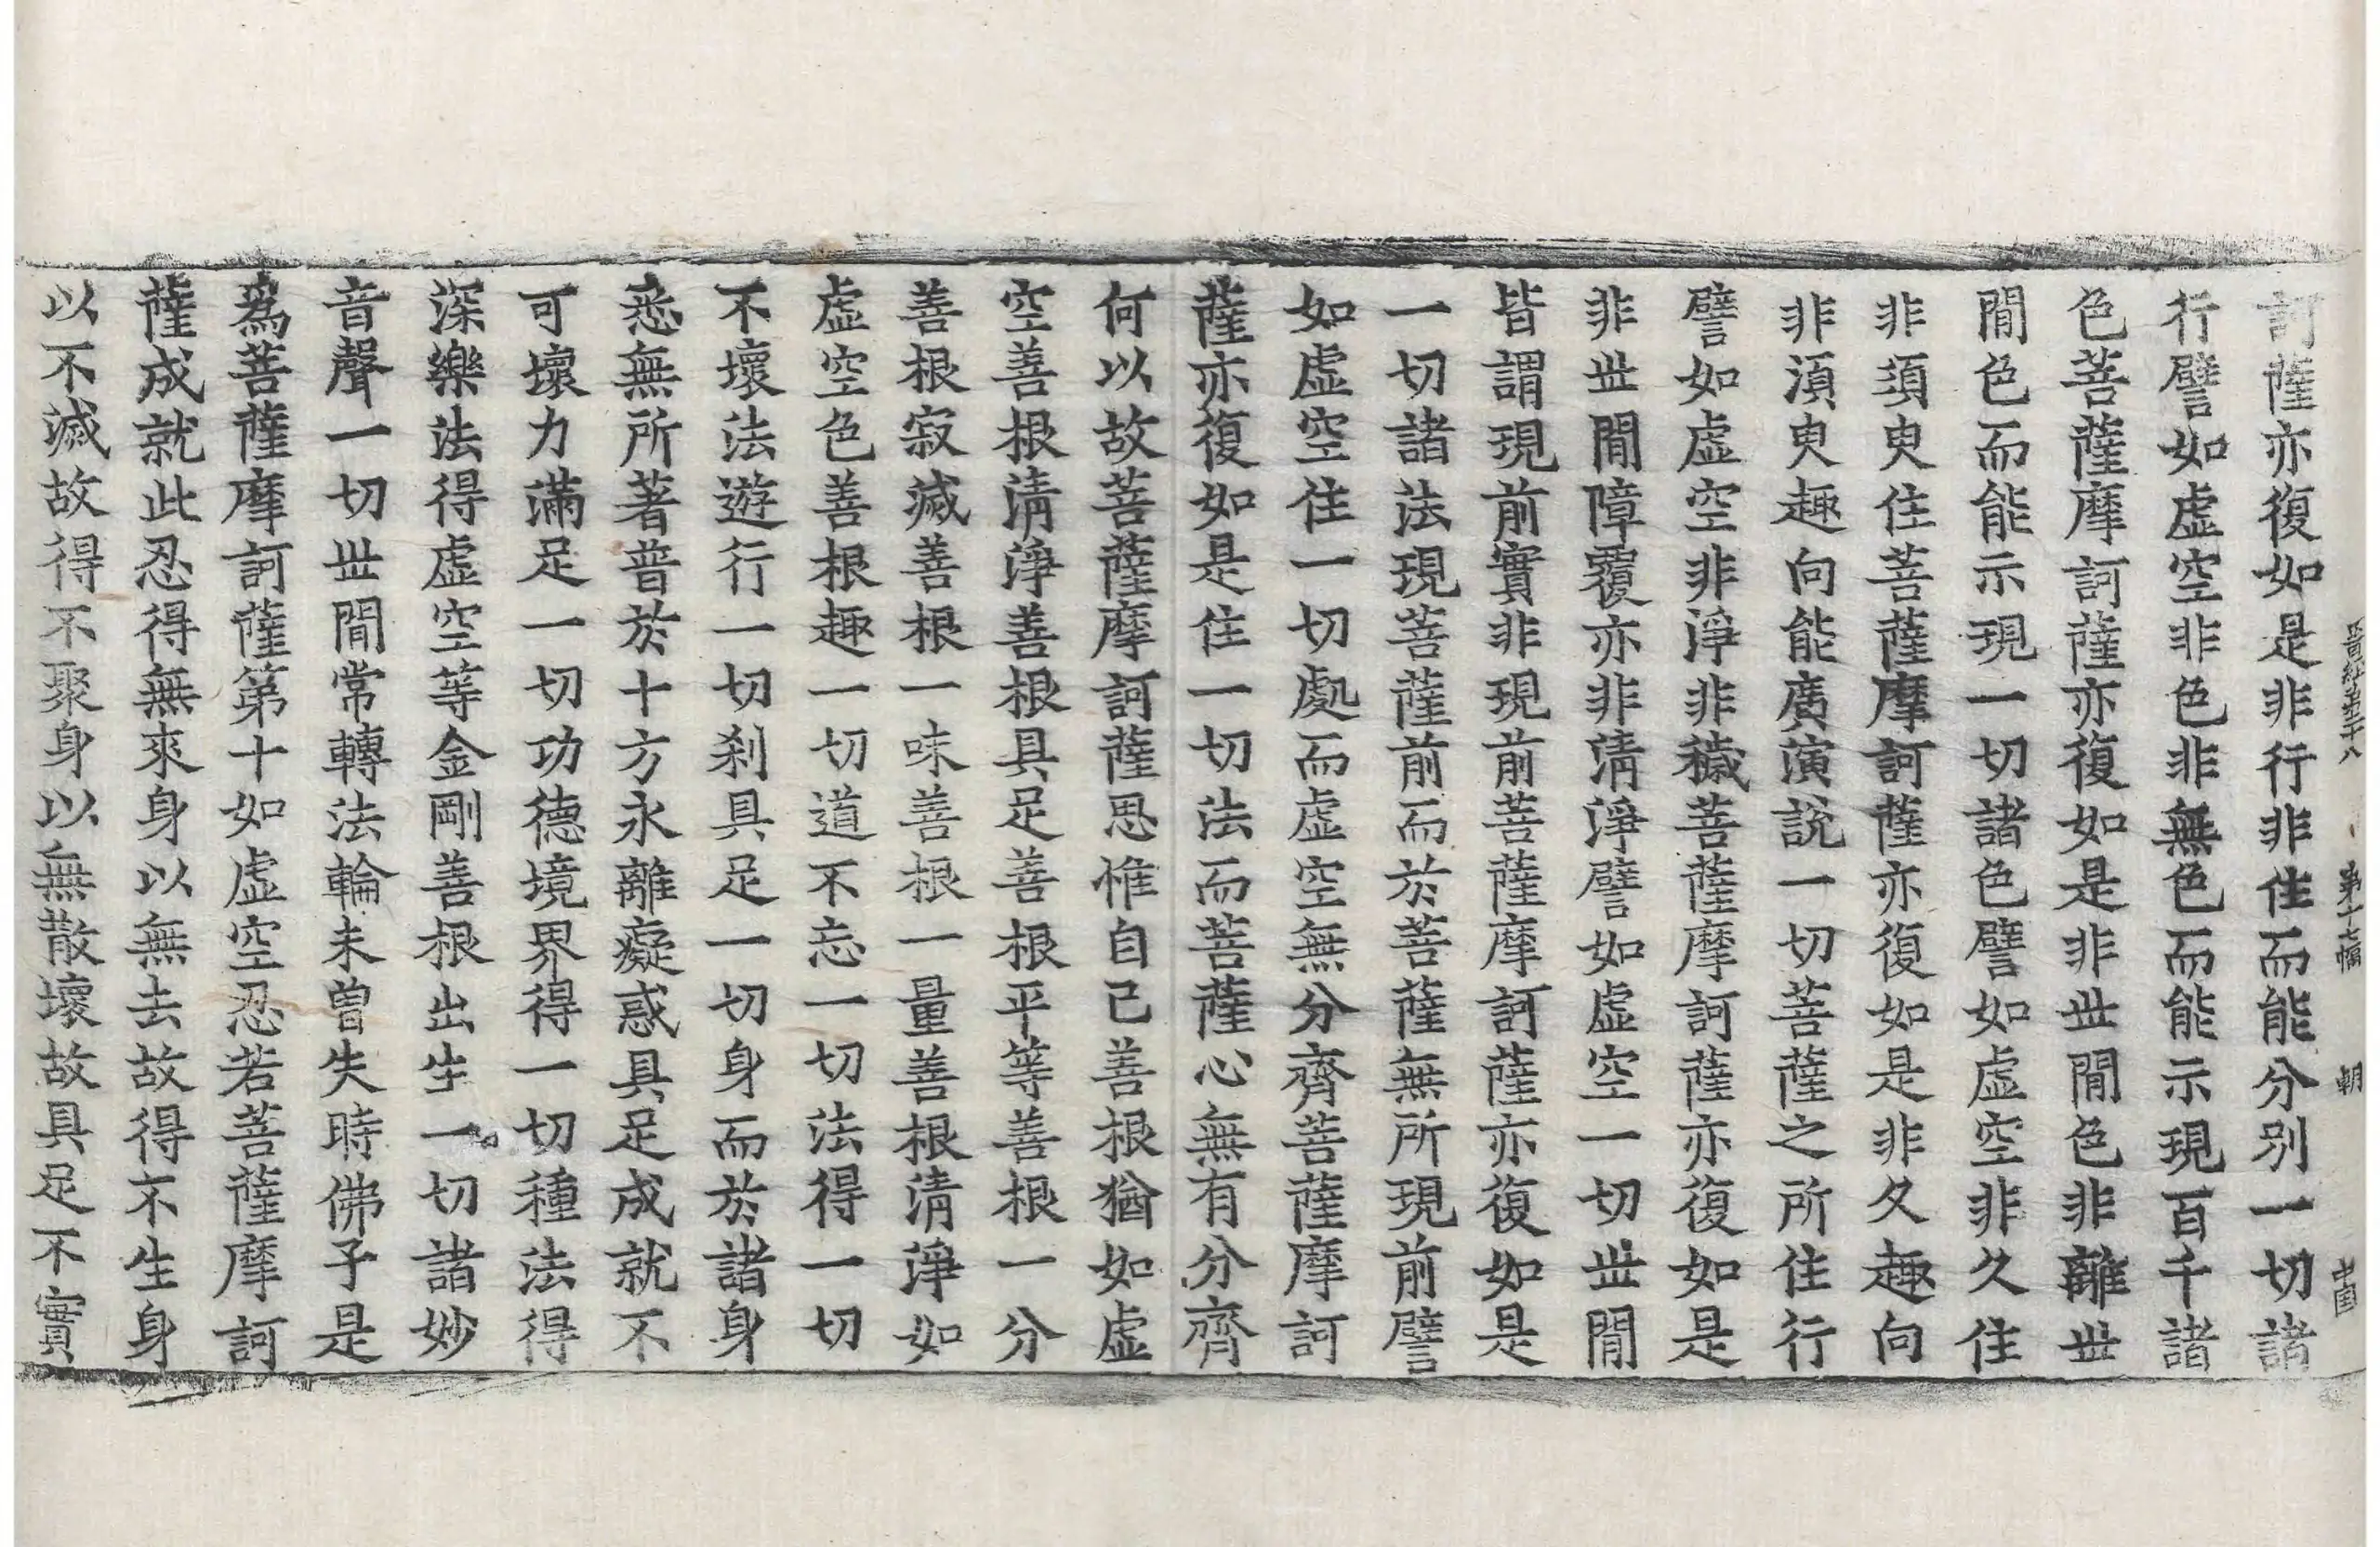 晉經第二十八 第十七幅 朝
訶薩亦復如是非行非住而能分別一切諸
行譬如虛空非色非無色而能示現百千諸
色菩薩摩訶薩亦復如是非丗閒色非離丗
閒色而能示現一切諸色譬如虛空非久住
非須臾住菩薩摩訶薩亦復如是非久趣向
非須臾趣向能廣演說一切菩薩之所住行
譬如虛空非淨非穢菩薩摩訶薩亦復如是
非丗閒障覆亦非清淨譬如虛空一切丗閒
皆謂現前實非現前菩薩摩訶薩亦復如是
一切諸法現菩薩前而於菩薩無所現前譬
如虛空住一切處而虛空無分齊菩薩摩訶
薩亦復如是住一切法而菩薩心無有分齊
何以故菩薩摩訶薩思惟自己善根猶如虛
空善根清淨善根具足善根平等善根一分
善根寂滅善根一味善根一量善根清淨如
虛空色善根趣一切道不忘一切法得一切
不壞法遊行一切刹具足一切身而於諸身
悉無所著普於十方永離癡惑具足成就不
可壞力滿足一切功德境界得一切種法得
深樂法得虛空等金剛善根出生一切諸妙
音聲一切丗閒常轉法輪未曾失時佛子是
爲菩薩摩訶薩第十如虛空忍若菩薩摩訶
薩成就此忍得無來身以無去故得不生身
以不滅故得不聚身以無散壞故具足不實